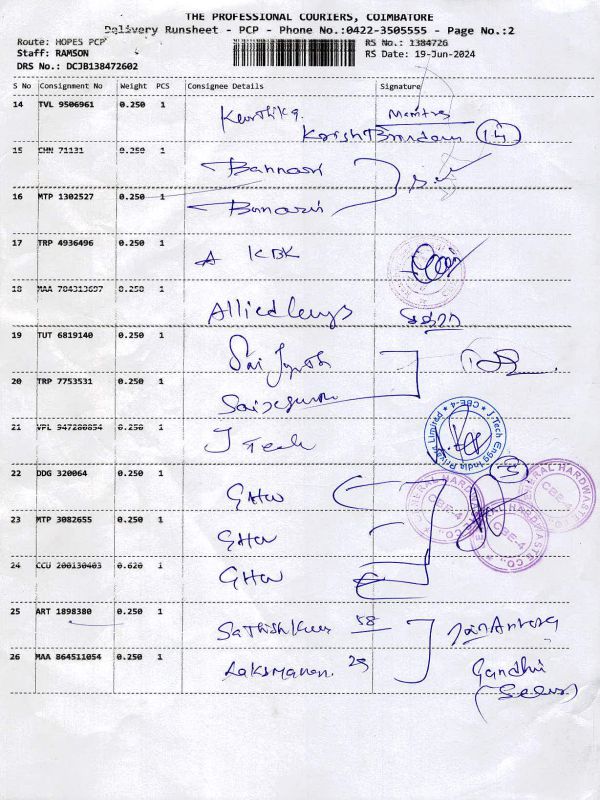 THE PROFESSIONAL COURIERS, COIMBATORE
Delivery Runsheet - PCP - Phone No.:0422-3505555 - Page No.:2
Route: HOPES PCP RS No.: 1384726
Staff: RAMSON RS Date: 19-Jun-2024
DRS No.: DCJB138472602
S No Consignment No Weight PCS Consignee Details Signature
14 TVL 9506961 0.250 1 Karthika
15 CHN 71131 0.250 1 Bannari
16 MTP 1302527 0.250 1 Bannari
17 TRP 4936496 0.250 1 KBK
18 MAA 784313697 0.250 1 Allied
19 TUT 6819140 0.250 1 Sai Jyoth
20 TRP 7753531 0.250 1
21 VPL 947280854 0.250 1 J Tech
J-Tech Engg India Private Limited * CBE-4 *
22 DDG 320064 0.250 1 GHW
GENERAL HARDWASTE CO. CBE-4
23 MTP 3082655 0.250 1 GHW
24 CCU 200130403 0.620 1 GHW
25 ART 1898380 0.250 1 Sathish Kumar 58
26 MAA 864511054 0.250 1 Laksmanan. 29 Gandhi